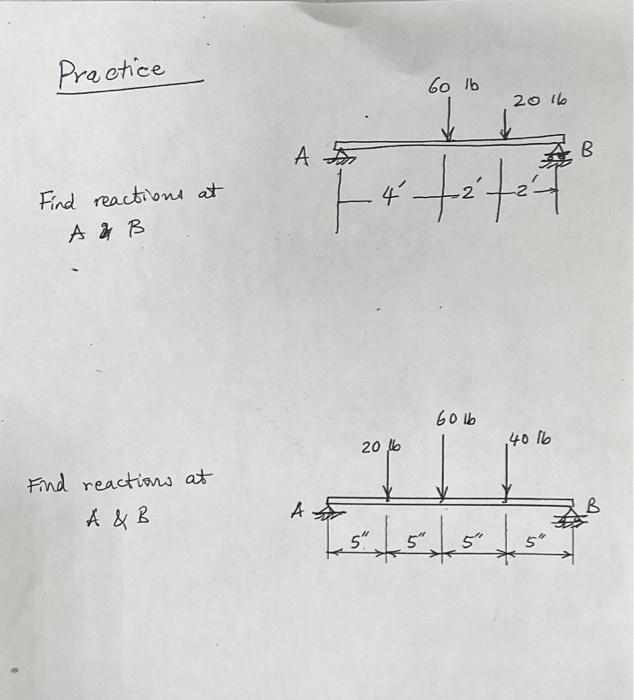 Practice
60 lb
20 lb
A
B
4' 2' 2'
Find reactions at
A & B
60 lb
20 lb
40 lb
Find reactions at
A & B
A
B
5" 5" 5" 5"